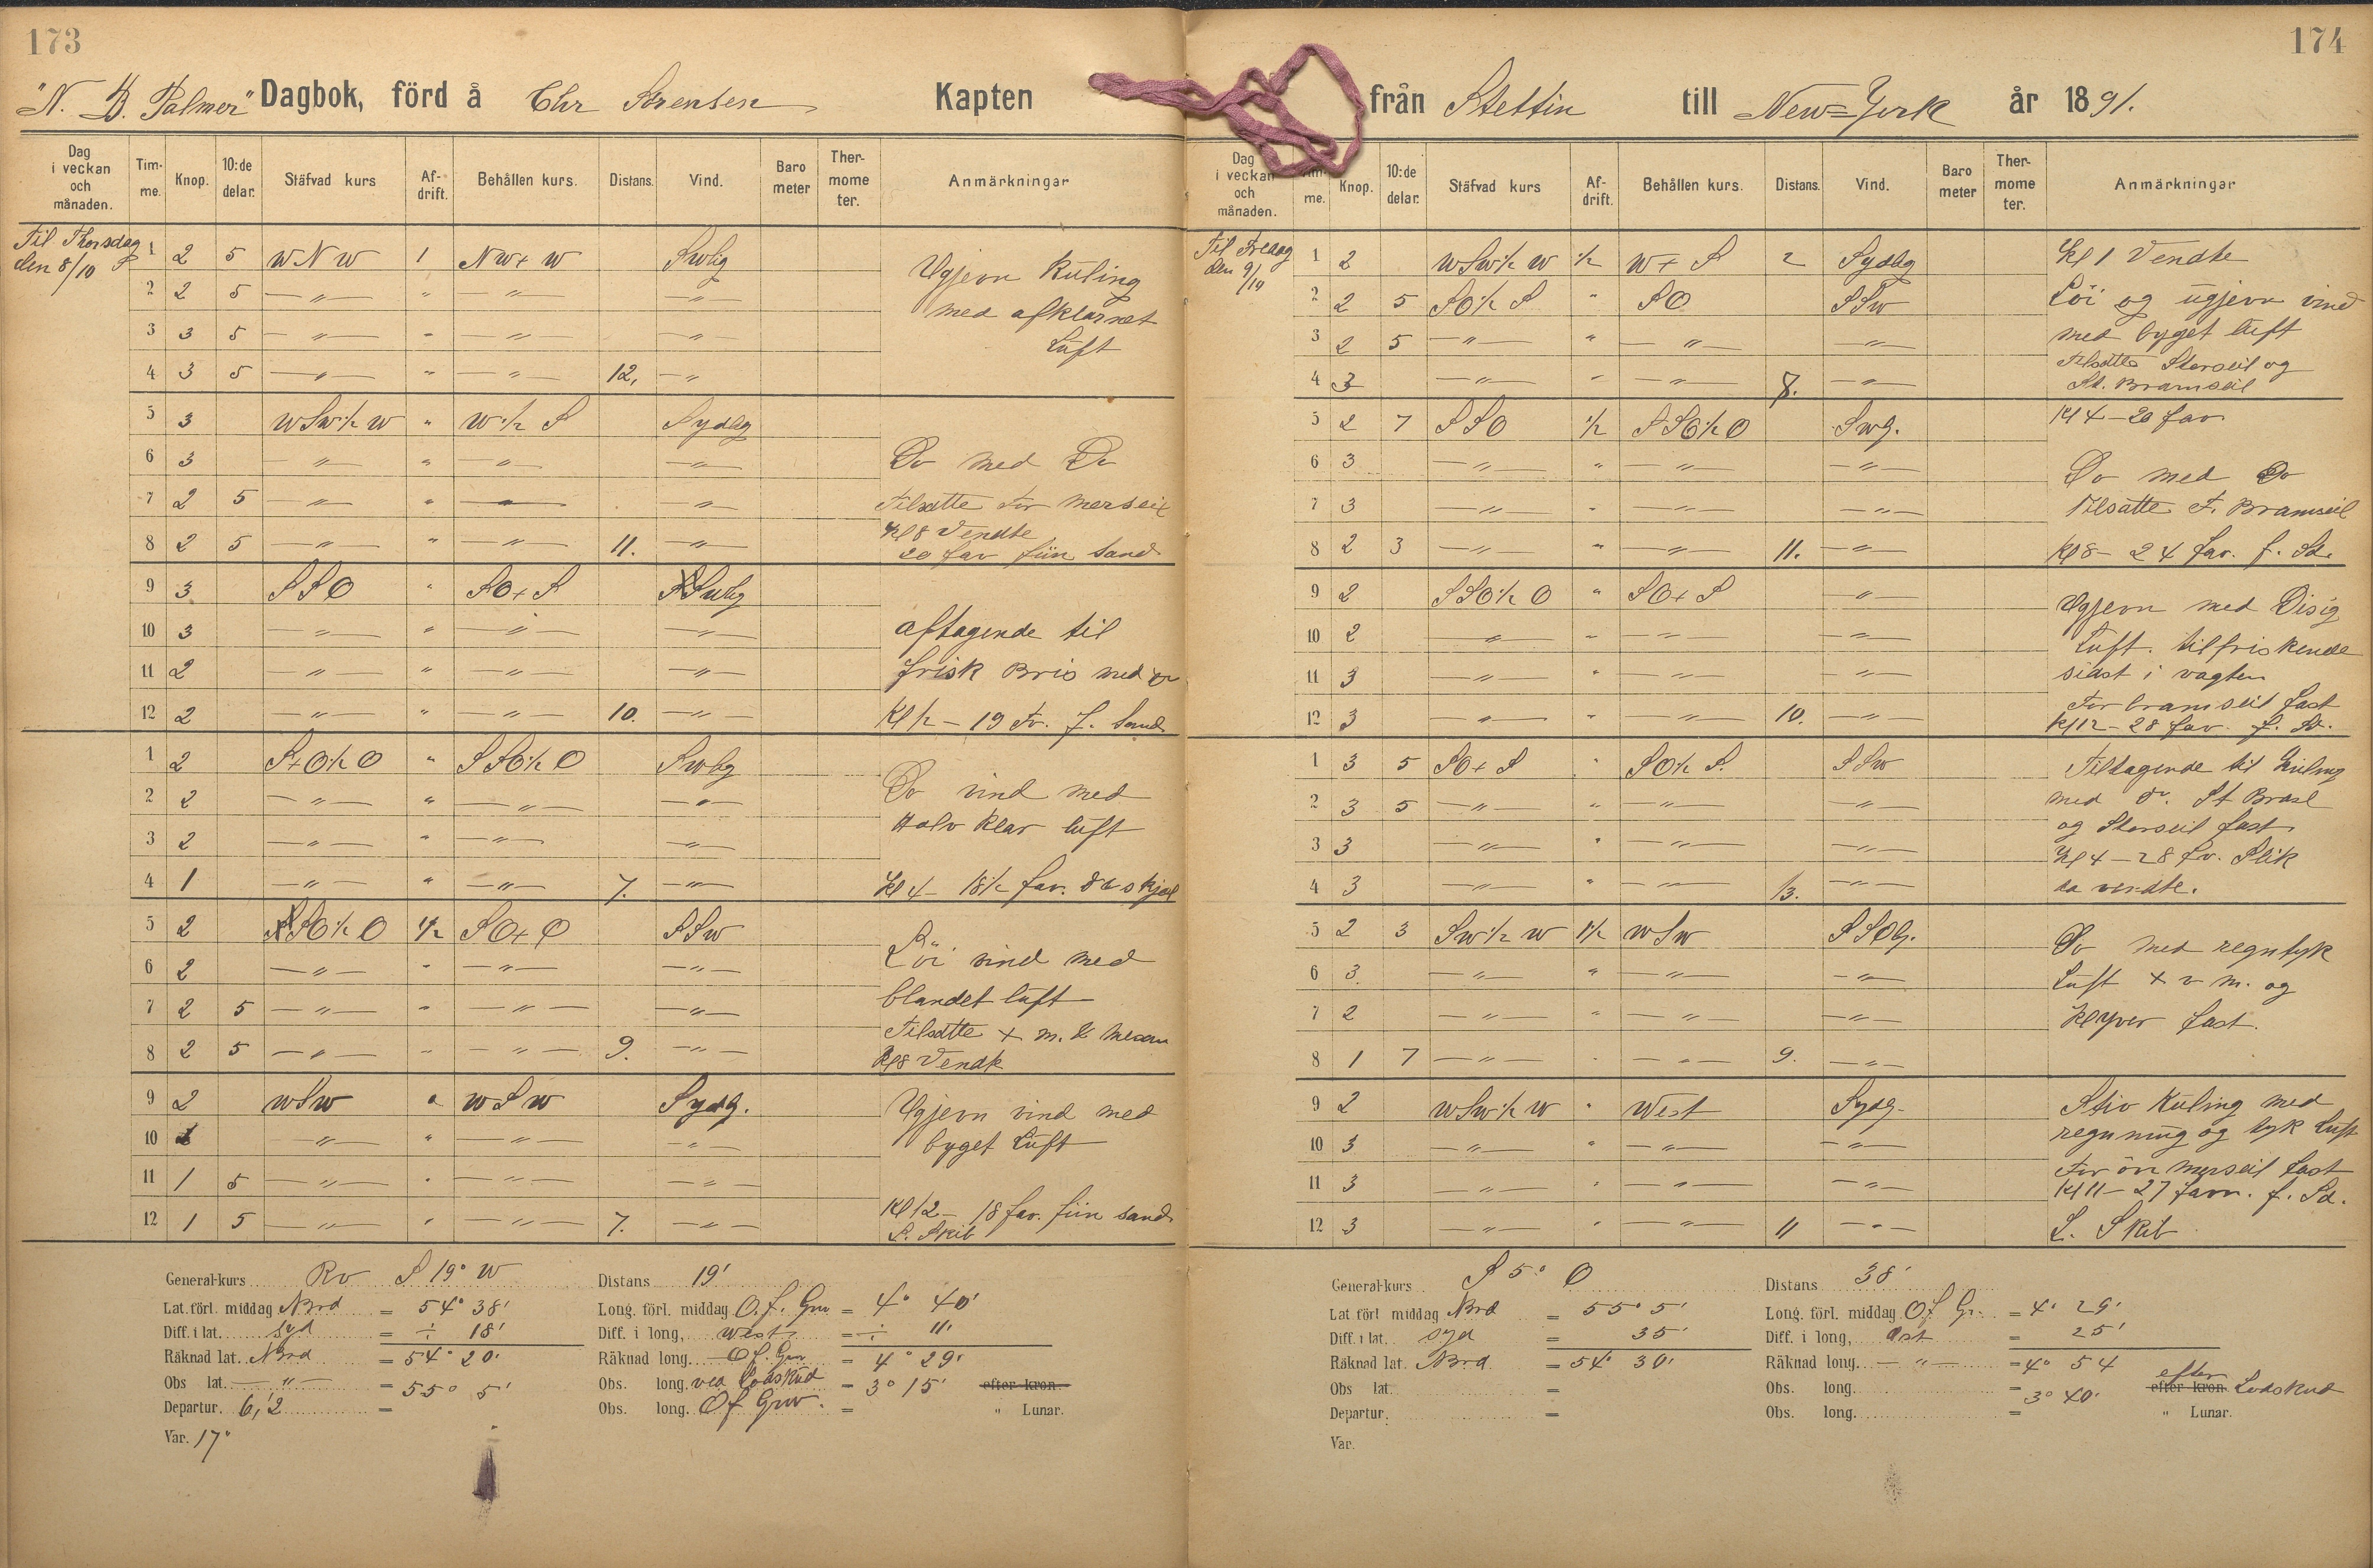 173
"N. B. Palmer" Dagbok, förd å Chr Sörensen Kapten
Dag i veckan och månaden. Tim-me. Knop. 10:de delar. Stäfvad kurs Af-drift. Behållen kurs. Distans. Vind. Baro meter Ther-mome ter. Anmärkningar
Til Thorsdag den 8/10
1 2 5 WNW 1 NW+W SWlig
2 2 5 —"— " —"— —"—
3 3 5 —"— " —"— —"—
4 3 5 —"— " —"— 12. —"—
Ugjevn Kuling
med afklarnet
Luft
5 3 WSW½W " W½S Sydlig
6 3 —"— " —"— —"—
7 2 5 —"— " —"— —"—
8 2 5 —"— " —"— 11. —"—
Do med Do
Tilsatte For Merseil
Kl 8 Vendte
20 fav fiin Sand
9 3 SSO " SO+S SWlig
10 3 —"— " —"— —"—
11 2 —"— " —"— —"—
12 2 —"— " —"— 10. —"—
aftagende til
frisk Bris med do
Kl 12 – 19 Fv. f. Sand
1 2 S+O½O " SSO½O SWlig
2 2 —"— " —"— —"—
3 2 —"— " —"— —"—
4 1 —"— " —"— 7. —"—
Do vind med
Halv Klar luft
Kl 4 – 18½ fav. do skjæl
5 2 SSO½O 1½ SO+O SSW
6 2 —"— " —"— —"—
7 2 5 —"— " —"— —"—
8 2 5 —"— " —"— 9. —"—
Löi vind med
blandet luft
Tilsatte + m. & Mesan
Kl 8 Vendte
9 2 WSW " WSW Sydlg.
10 —"— " —"— —"—
11 1 5 —"— " —"— —"—
12 1 5 —"— " —"— 7. —"—
Ugjevn vind med
byget Luft
Kl 12 – 18 fav. fiin sand
L. Skib
General-kurs Rv S 19° W Distans 19'
Lat. förl. middag Nord = 54° 38' Long. förl. middag O. f. Grw = 4° 40'
Diff. i lat. Syd = ÷ 18' Diff. i long, West = ÷ 11'
Räknad lat. Nord = 54° 20' Räknad long. O f. Grw = 4° 29'
Obs lat. —"— = 55° 5' Obs. long. ved Lodskud = 3° 15' efter kron.
Departur. 6,2 = Obs. long. Of Grw. = " Lunar.
Var. 17°
174
från Stettin till New=York år 1891.
Dag i veckan och månaden. Tim-me. Knop. 10:de delar. Stäfvad kurs Af-drift. Behållen kurs. Distans. Vind. Baro meter Ther-mome ter. Anmärkningar
Til Fredag den 9/10
1 2 WSW½W ½ W+S 2 Sydlig
2 2 5 SO½S " SO SSW
3 2 5 —"— " —"— —"—
4 3 —"— " —"— 8. —"—
Kl 1 Vendte
Löi og ugjevn vind
med byget luft
Tilsatte Storseil og
St. Bramseil
Kl 4 – 20 fav
5 2 7 SSO ½ SSO½O SWlg.
6 3 —"— " —"— —"—
7 3 —"— " —"— —"—
8 2 3 —"— " —"— 11. —"—
Do med Do
Tilsatte F. Bramseil
Kl 8 – 24 fav. f. Sd.
9 2 SSO½O " SO+S —"—
10 2 —"— " —"— —"—
11 3 —"— " —"— —"—
12 3 —"— " —"— 10. —"—
Ugjevn med Disig
Luft. tilfriskende
sidst i vagten
For bramseil fast
Kl 12 – 28 fav. f. Sd.
1 3 5 SO+S " SO½S. SSW
2 3 5 —"— " —"— —"—
3 3 —"— " —"— —"—
4 3 —"— " —"— 13. —"—
Tiltagende til Kuling
med do. St Brasl
og Storseil fast
Kl 4 – 28 fv. Slik
da vendte.
5 2 3 SW½W 1½ WSW SSOlg.
6 3 —"— " —"— —"—
7 2 —"— " —"— —"—
8 1 7 —"— " —"— 9. —"—
Do med regntyk
Luft + v m. og
Klyver fast.
9 2 WSW½W " West Sydlg.
10 3 —"— " —"— —"—
11 3 —"— " —"— —"—
12 3 —"— " —"— 11 —"—
Stiv Kuling med
regnning og tyk Luft
For övr merseil fast
Kl 11 – 27 favn. f. Sd.
L. Skib
General-kurs S 5° O Distans 38'
Lat förl middag Nord = 55° 5' Long. förl. middag Of Gr. = 4° 29'
Diff. i lat. Syd = 35' Diff. i long, Ost = 25'
Räknad lat. Nord = 54° 30' Räknad long. —"— = 4° 54
Obs lat. = Obs. long. = 3° 40' efter kron. efter Lodskud
Departur. = Obs. long. = " Lunar.
Var.